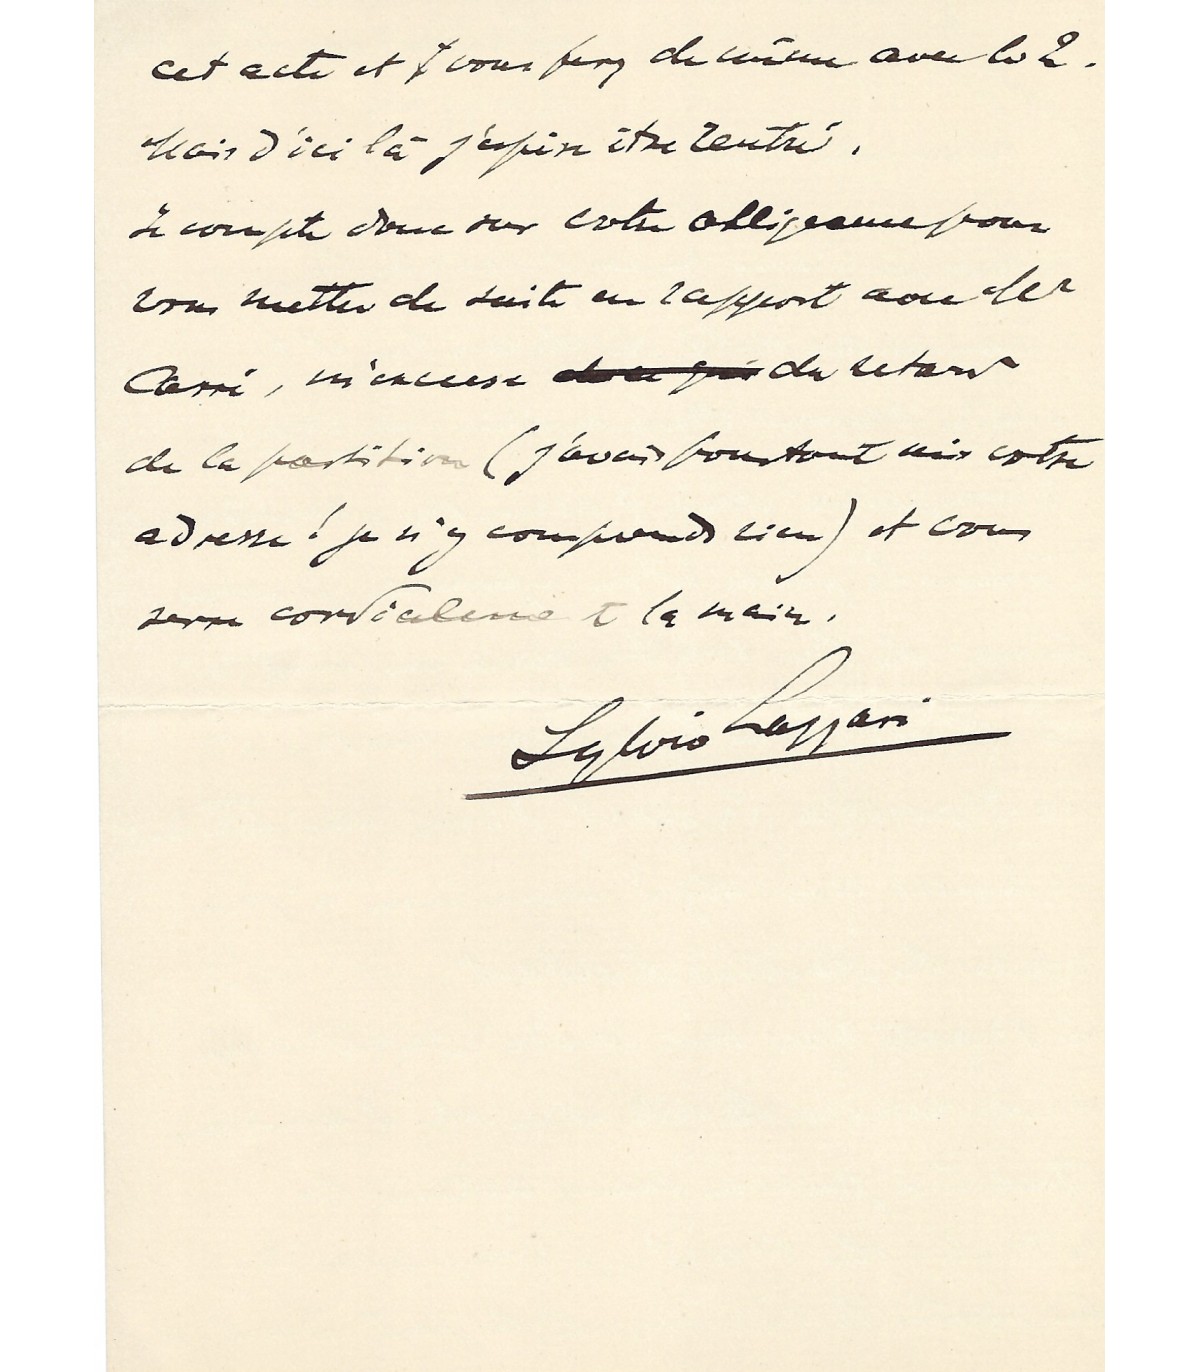 cet acte et vous ferez de même avec le 2.
Mais d'ici là j'espère être rentré.
Je compte donc sur votre obligeance pour
vous mettre de suite en rapport avec Mr
Carré, m'excuse du retard
de la partition (j'avais pourtant mis votre
adresse! je n'y comprends rien) et vous
serre cordialement la main.
Sylvio Lazzari